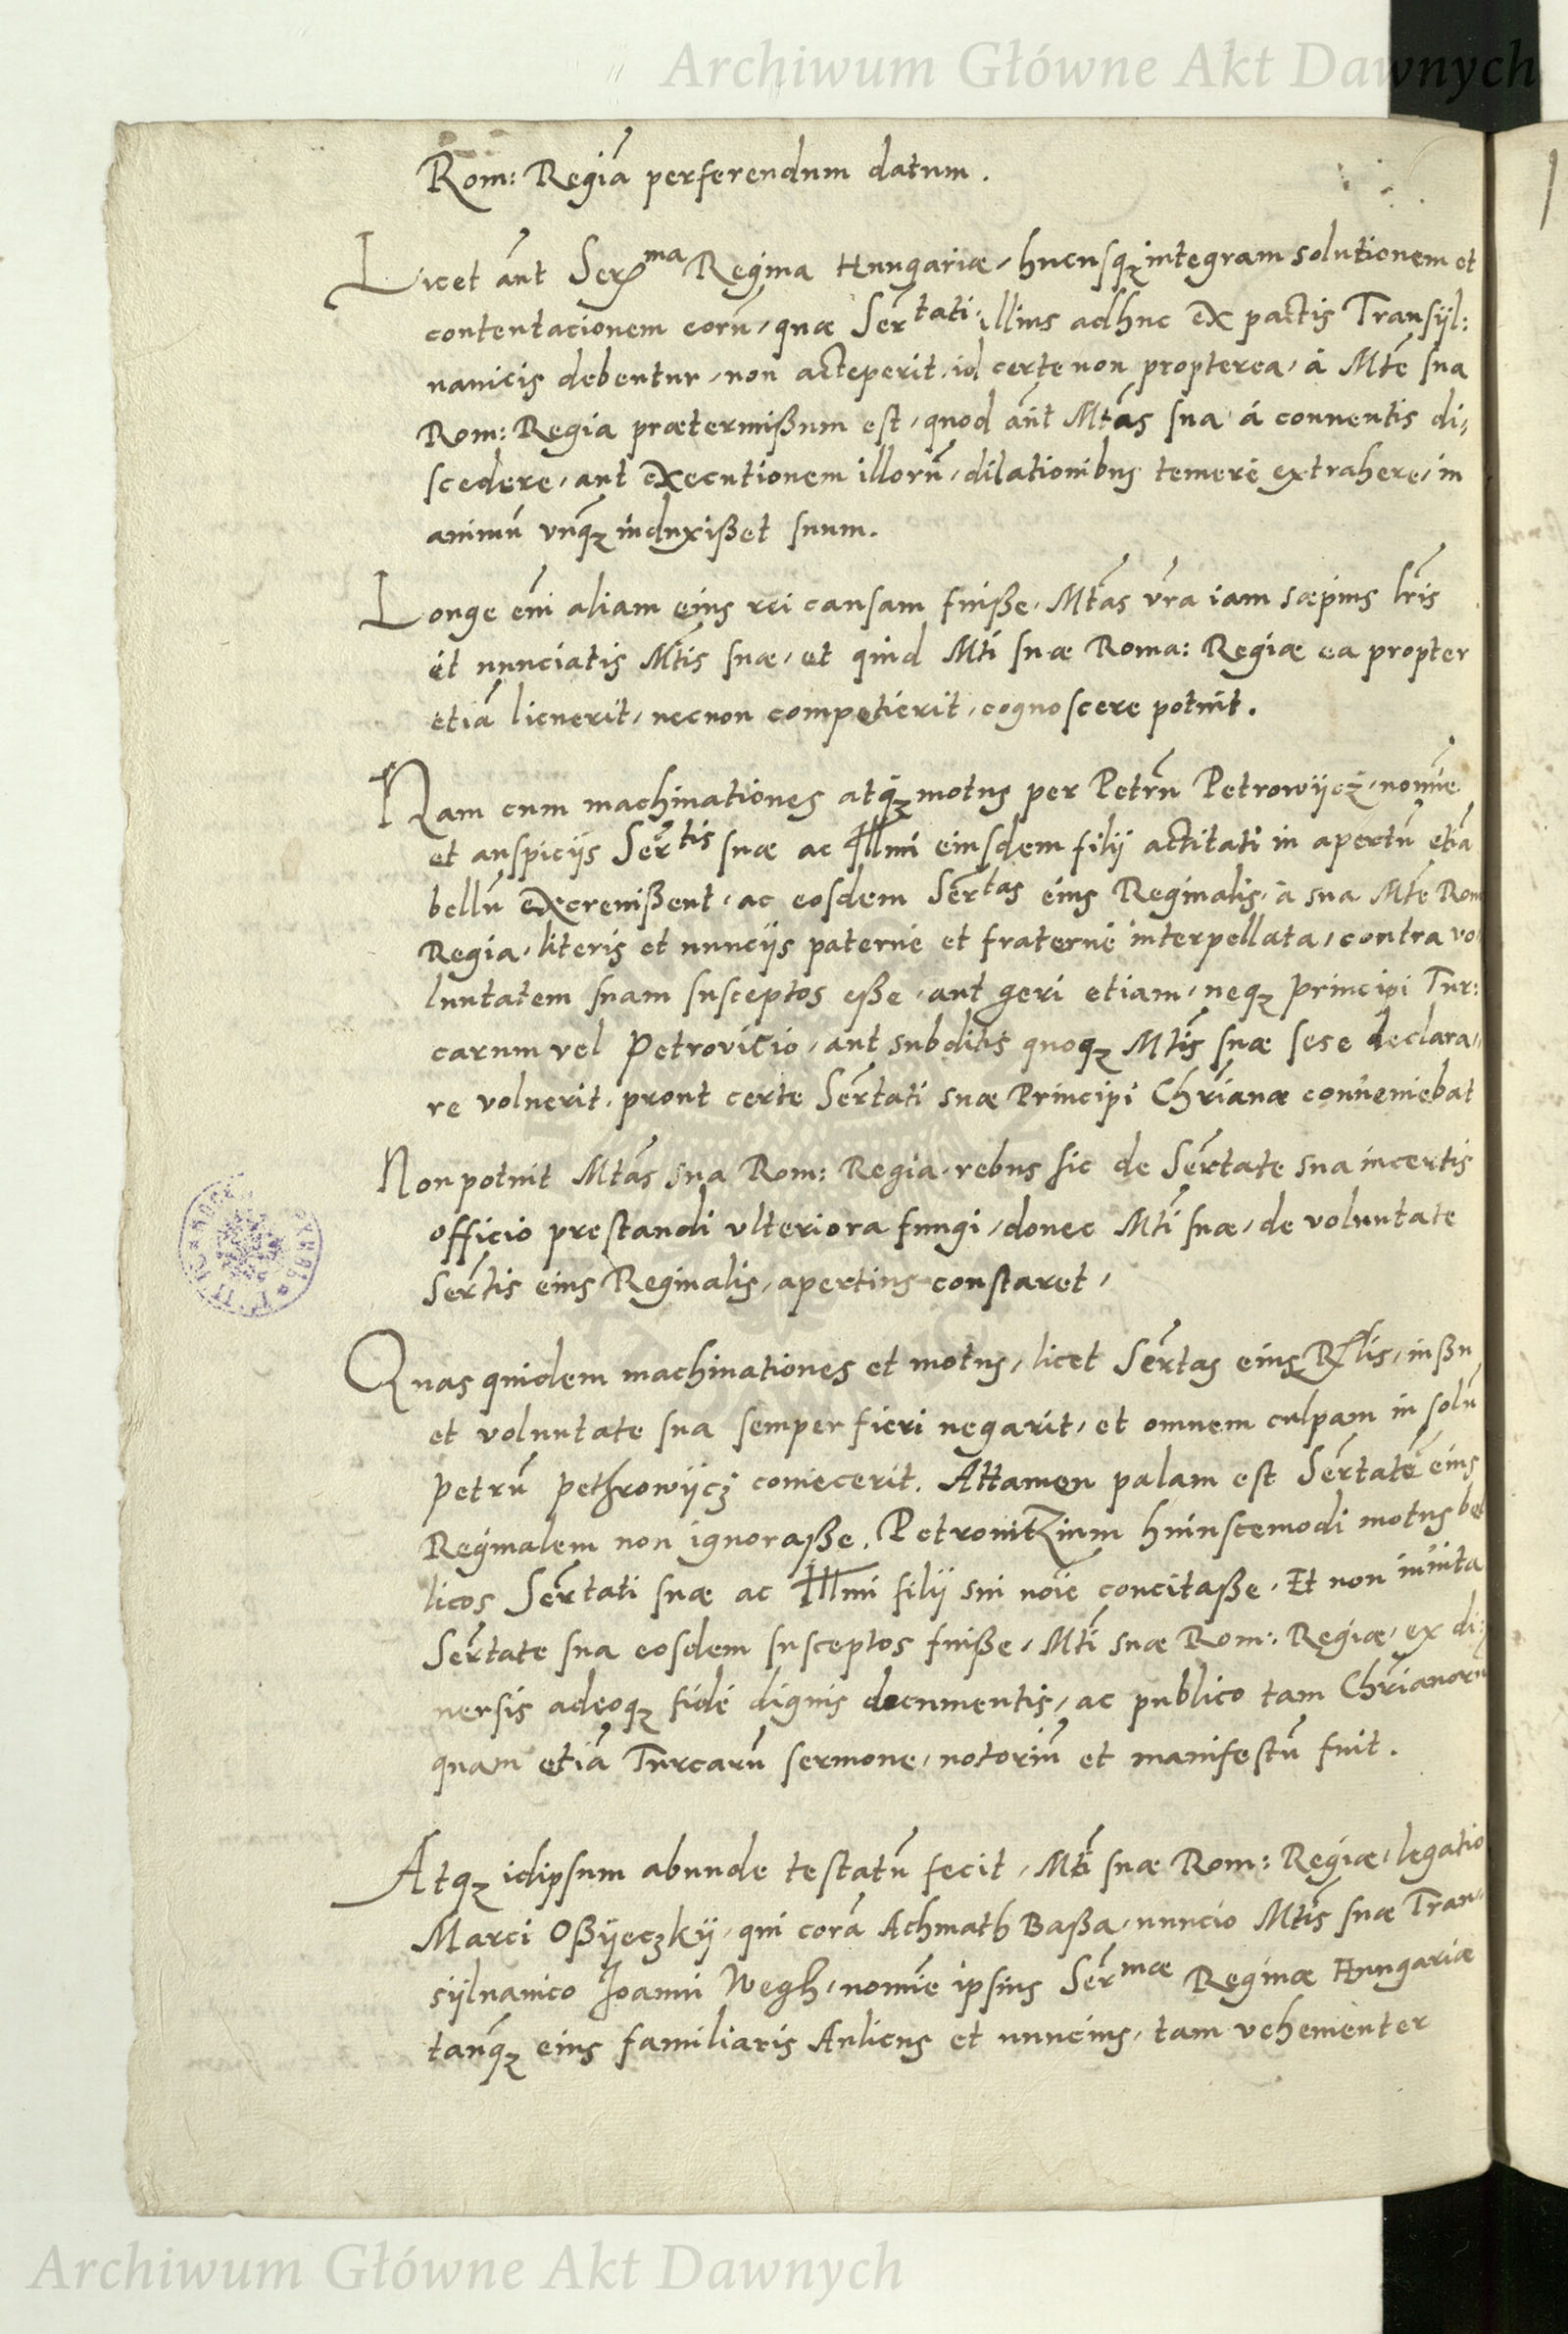 Archiwum Główne Akt Dawnych
Rom: Regiā perferendum datum.
Licet aūt Ser^ma Regina Hungariæ, hucusqꝫ integram solutionem et
contentacionem eorū, quæ Ser^tati illius adhuc ex pactis Transyl:
uanicis debentur, non acceperit, id certe non propterea, à Mte sua
Rom: Regia prætermißum est, quod aūt Mtās sua à conuentis di,
scedere, aut executionem illorū, dilationibus temere extrahere, in
animū vnqꝫ induxißet suum.
Longe eni aliam eius rei causam fuiße, Mtās vr̄a iam sæpius lr̄is
et nunciatis Mtis suæ, et quid Mti suæ Roma: Regiæ ea propter
etiā licuerit, necnon competierit, cognoscere potuit.
Nam cum machinationes atqꝫ motus per Petrū Petrowÿcz, nomīe
et auspicÿs Ser^tis suæ ac Illmi eiusdem filÿ actitati in apertū etiā
bellū excreuißent, ac eosdem Ser^tas eius Reginalis, à sua Mte Rom
Regia, literis et nuncÿs paterne et fraterne interpellata, contra vo
luntatem suam susceptos eße, aut geri etiam, neqꝫ Principi Tur:
carum vel Petrovicio, aut subditis quoqꝫ Mtis suæ sese declara,
re voluerit, prout certe Sertati suæ Principi Chr̄ianæ conueniebat
Non potuit Mtās sua Rom: Regia, rebus sic de Sertate sua incertis
officio prestandi vlteriora fungi, donec Mti suæ, de voluntate
Sertis eius Reginalis, apertius constaret,
Quas quidem machinationes et motus, licet Sertas eius Rlis, iußu
et voluntate sua semper fieri negarit, et omnem culpam in solū
Petrū Pethrowÿcz coniecerit. Attamen palam est Sertatē eius
Reginalem non ignoraße, Petrouitzium huiuscemodi motus bel
licos Sertati suæ ac Illmi filÿ sui noīe concitaße. Et non inuita
Sertate sua eosdem susceptos fuiße, Mti suæ Rom: Regiæ, ex di:
uersis adeoqꝫ fide dignis documentis, ac publico tam Chr̄ianorū
quam etiā Turcarū sermone, notoriū et manifestū fuit.
Atqꝫ idipsum abunde testatū fecit, Mti suæ Rom: Regiæ, legatio
Marci Oßÿeczkÿ, qui corā Achmath Baßa, nuncio Mtis suæ Tran,
sÿluanico Joanni Wegh, nomīe ipsius Ser^mæ Reginæ Hungariæ
tanqꝫ eius familiaris Aulicus et nuncius, tam vehementer
Archiwum Główne Akt Dawnych